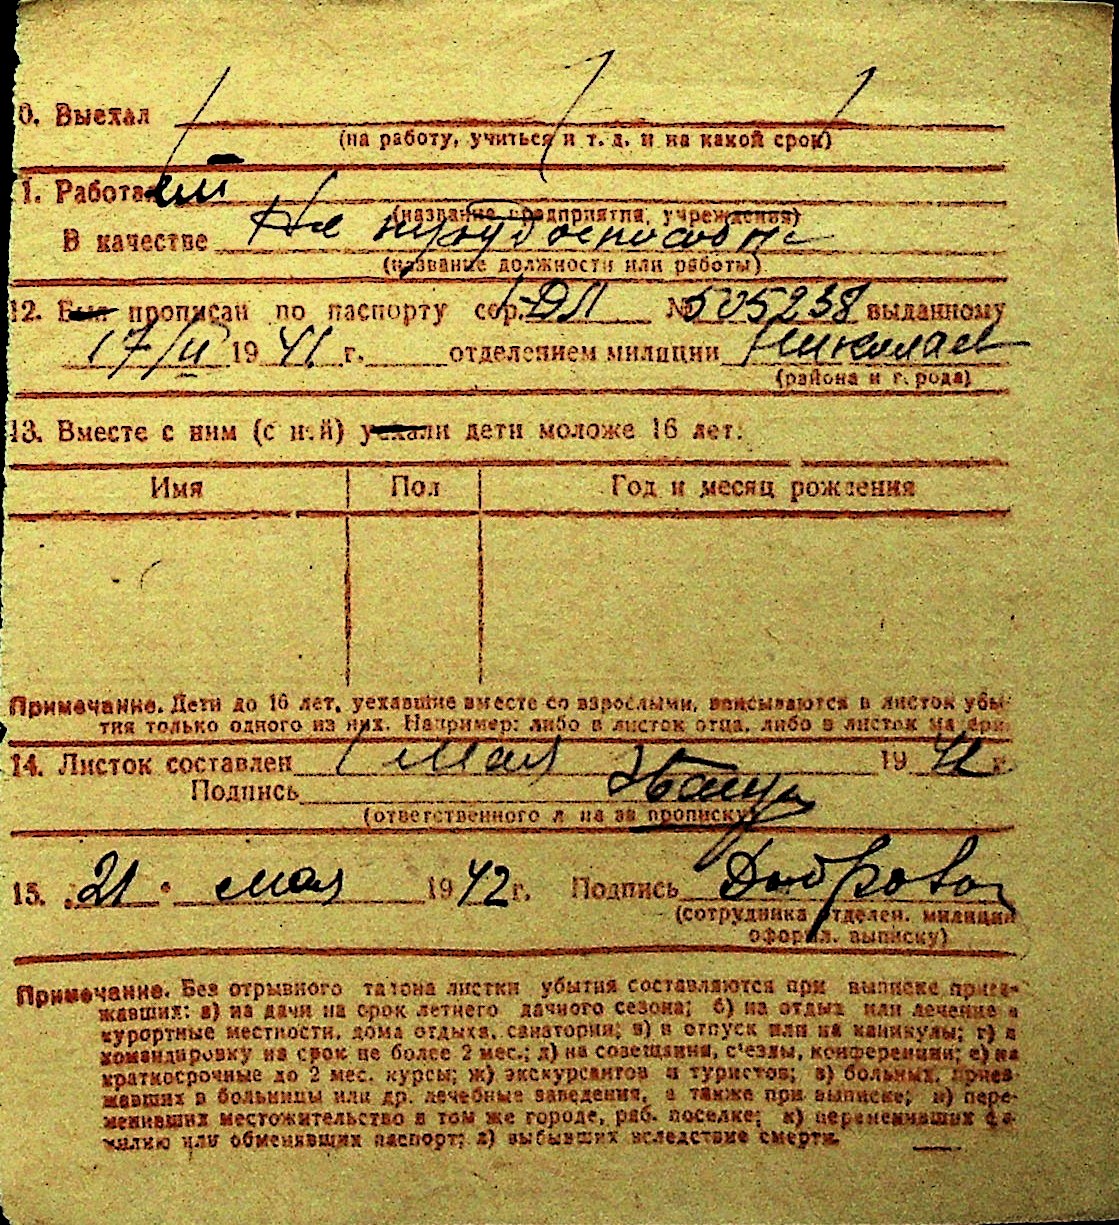 0. Выехал
(на работу, учиться и т. д. и на какой срок)
1. Работа
(название предприятия, учреждения)
В качестве Не трудоспособн
(название должности или работы)
12. Был прописан по паспорту сер. I-ДЛ № 505238 выданному
17/II 1941 г. отделением милиции Николаев
(района и города)
13. Вместе с ним (с ней) уехали дети моложе 16 лет:
Имя Пол Год и месяц рождения
Примечание. Дети до 16 лет, уехавшие вместе со взрослыми, вписываются в листок убы-
тия только одного из них. Например: либо в листок отца, либо в листок матери.
14. Листок составлен мая 1942 г.
Подпись
(ответственного л на за прописку)
15. „21" мая 1942 г. Подпись
(сотрудника отделен. милиции
оформл. выписку)
Примечание. Без отрывного талона листки убытия составляются при выписке приез-
жавших: а) на дачи на срок летнего дачного сезона; б) на отдых или лечение в
курортные местности, дома отдыха, санатории; в) в отпуск или на каникулы; г) в
командировку на срок не более 2 мес.; д) на совещания, съезды, конференции; е) на
краткосрочные до 2 мес. курсы; ж) экскурсантов и туристов; з) больных, приез-
жавших в больницы или др. лечебные заведения, а также при выписке; и) пере-
менивших местожительство в том же городе, раб. поселке; к) переменивших фа-
милию или обменявших паспорт; л) выбывших вследствие смерти.